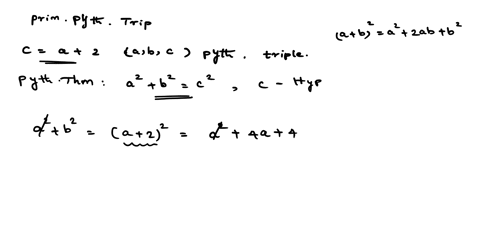 prim. pyth. Trip
(a+b)² = a² + 2ab + b²
c = a + 2 (a, b, c) pyth. triple.
pyth. Thm: a² + b² = c², c - Hyp
a² + b² = (a+2)² = a² + 4a + 4